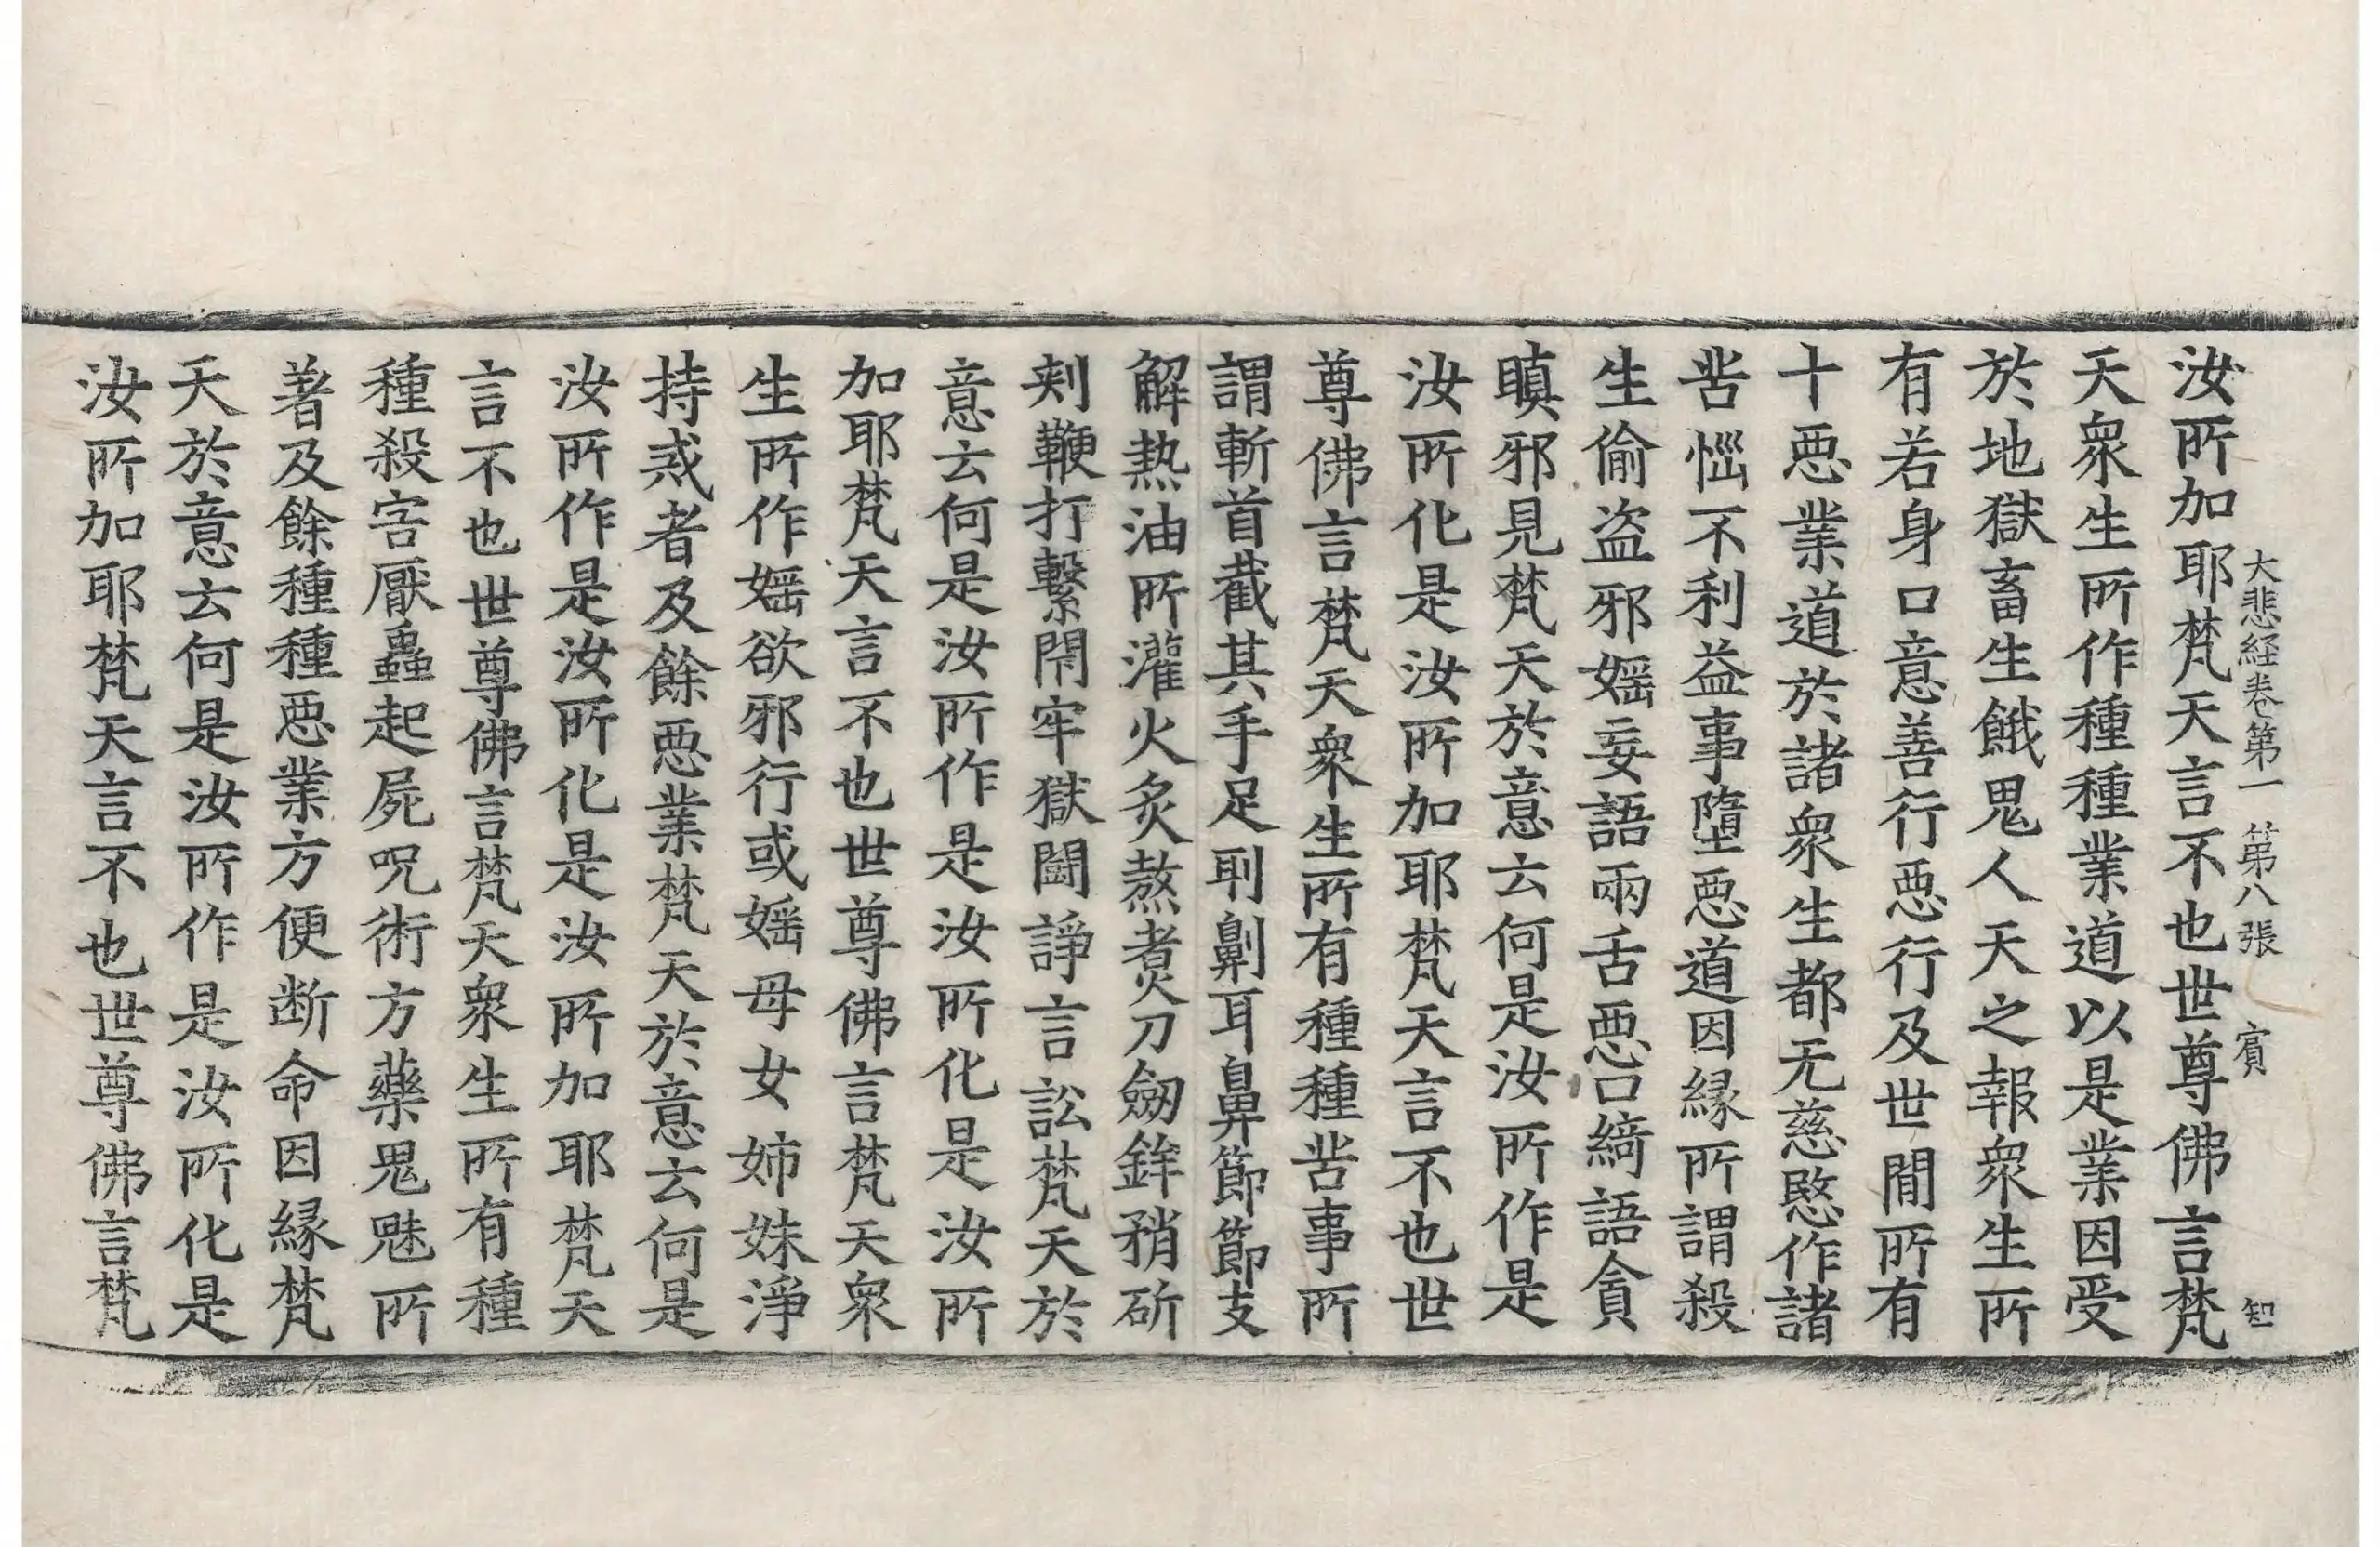 大悲経卷第一 第八張 賔 知
汝所加耶梵天言不也世尊佛言梵
天衆生所作種種業道以是業因受
於地獄畜生餓鬼人天之報衆生所
有若身口意善行惡行及世間所有
十惡業道於諸衆生都无慈愍作諸
苦惱不利益事墮惡道因緣所謂殺
生偷盜邪婬妄語兩舌惡口綺語貪
瞋邪見梵天於意云何是汝所作是
汝所化是汝所加耶梵天言不也世
尊佛言梵天衆生所有種種苦事所
謂斬首截其手足刵劓耳鼻節節支
解熱油所灌火炙熬煮刀劒鉾矟斫
刾鞭打繫閇牢獄鬪諍言訟梵天於
意云何是汝所作是汝所化是汝所
加耶梵天言不也世尊佛言梵天衆
生所作婬欲邪行或婬母女姉妹淨
持戒者及餘惡業梵天於意云何是
汝所作是汝所化是汝所加耶梵天
言不也世尊佛言梵天衆生所有種
種殺害厭蠱起屍呪術方藥鬼魅所
著及餘種種惡業方便断命因緣梵
天於意云何是汝所作是汝所化是
汝所加耶梵天言不也世尊佛言梵